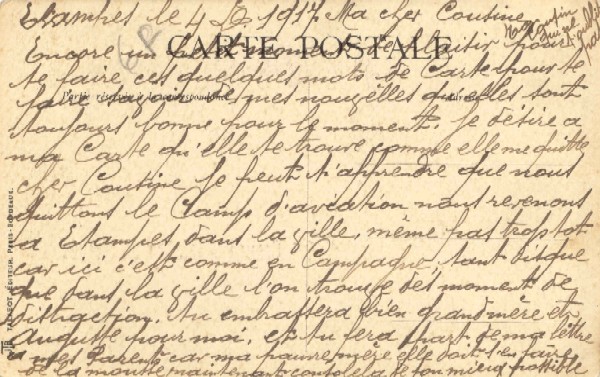 Etampes le 4 D. 1917 Ma cher Cousine
68
CARTE POSTALE
Encore un de plaisir pour
te faire ces quelques mots de Carte pour te
faire mes nouvelles qu'elles sont
Partie réservée à la correspondance
toujours bonne pour le moment. Je désire a
ma Carte qu'elle te trouve comme elle me quitte
cher Cousine je peut t'apprendre que nous
quittons le Camp d'aviation nous revenons
a Etampes dans la ville, même pas trop tot
car ici c'est comme en Campagne, tant disque
que dans la ville l'on trouve des moment de
distraction. tu embrassera bien grand mère et
Augutte pour moi, et tu fera part de ma lettre
a mes Parents car ma pauvre mère elle doit s'en faire
de la maintenant console la de ton mieux possible
EDITEUR, PARIS-BORDEAUX.